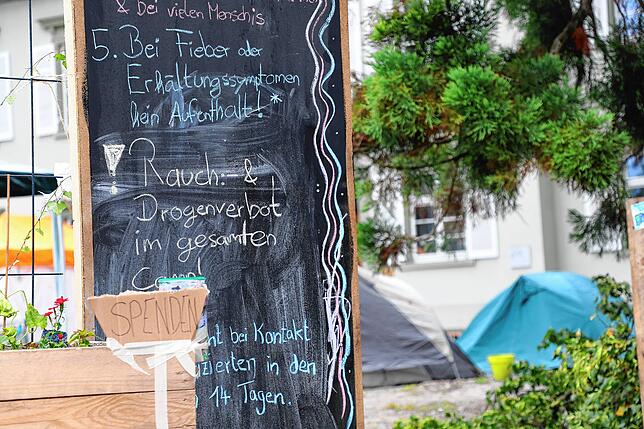 & Bei vielen Menschis
5. Bei Fieber oder
Erkältungssymptomen
kein Aufenthalt! *
! Rauch- &
Drogenverbot
im gesamten
SPENDEN
bei Kontakt
in den
14 Tagen.